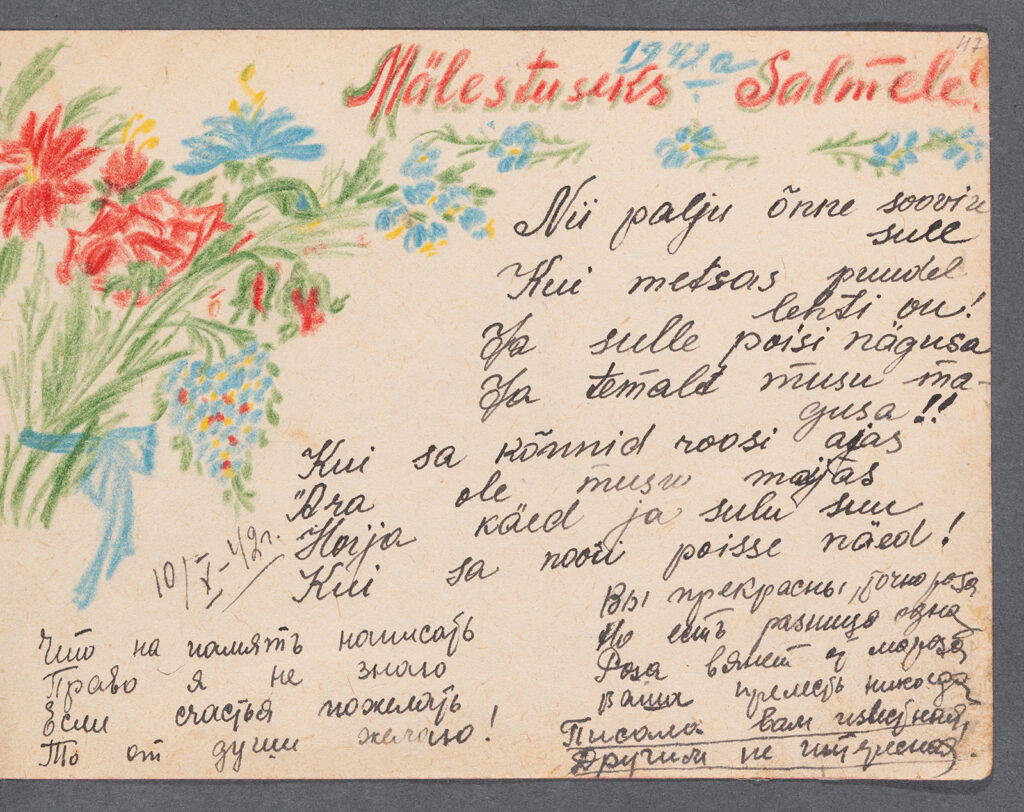 117
1942 a
Mälestuseks Salmele!
Nii palju õnne soovin
sull
Kui metsas puudel
lehti on!
Ja sulle poisi nägusa
Ja temalt musu ma-
gusa!!
Kui sa kõnnid roosi ajas
Ära ole musu maijas
Hoija käed ja sulu suu
Kui sa noori poisse näed!
10/X-42г.
Что на память написать
Право я не знаю
Если счастья пожелать
То от души желаю!
Вы прекрасны, точно роза
Но есть разница одна
Роза вянет от мороза
Ваша прелесть никогда
Писала вам известная,
Другим не интересная.